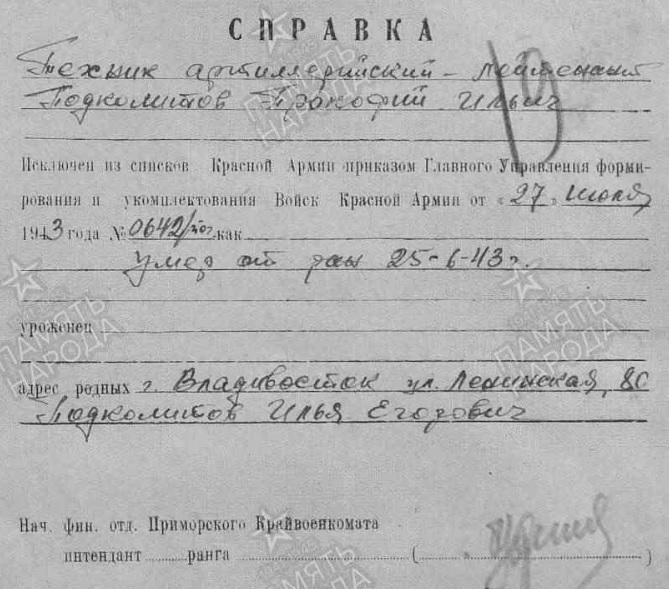 СПРАВКА
Техник артиллерийский - лейтенант
Подкомитов Прокофий Ильич
Исключен из списков Красной Армии приказом Главного Управления форми-
рования и укомплектования Войск Красной Армии от «27» июля
1943 года № 0642/ как
умер от ран 25-6-43г.
уроженец
адрес родных г. Владивосток ул. Ленинская, 80
Подкомитов Илья Егорович
Нач. фин. отд. Приморского Крайвоенкомата
интендант ранга ( )
ПАМЯТЬ НАРОДА